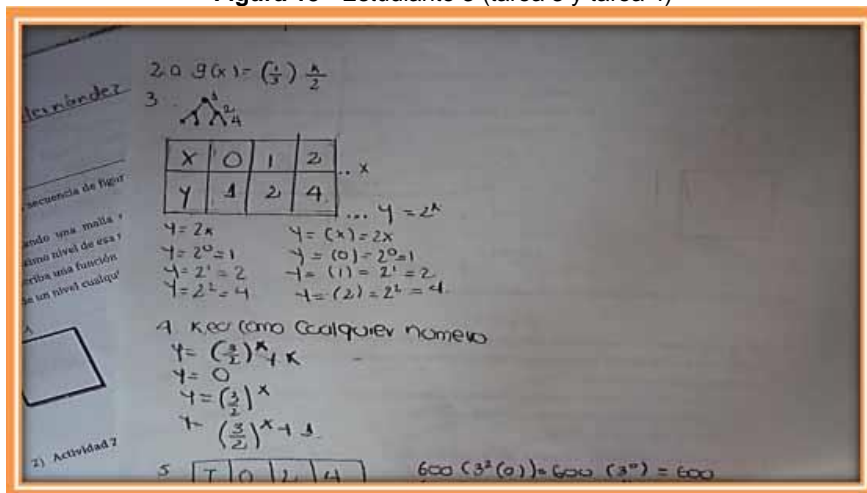 Figura 15 - Estudiante 3 (tarea 3 y tarea 4)
Hernández
secuencia de figur
ando una malla
ximo nivel de esa
criba una función
de un nivel cualqu
2) Actividad 2
2.0 g(x) = (1/3) x/2
3.
1
2
4
X | 0 | 1 | 2 .. x
Y | 1 | 2 | 4 ... y = 2^x
y = 2x   y = (x) = 2x
y = 2^0 = 1   y = (0) = 2^0 = 1
y = 2^1 = 2   y = (1) = 2^1 = 2
y = 2^2 = 4   y = (2) = 2^2 = 4.
4 como cualquier numero
y = (3/2)^x + k
y = 0
y = (3/2)^x
y = (3/2)^x + 1
5 | T | 0 | 2 | 4   600 (3^2(0)) = 600 (3^0) = 600